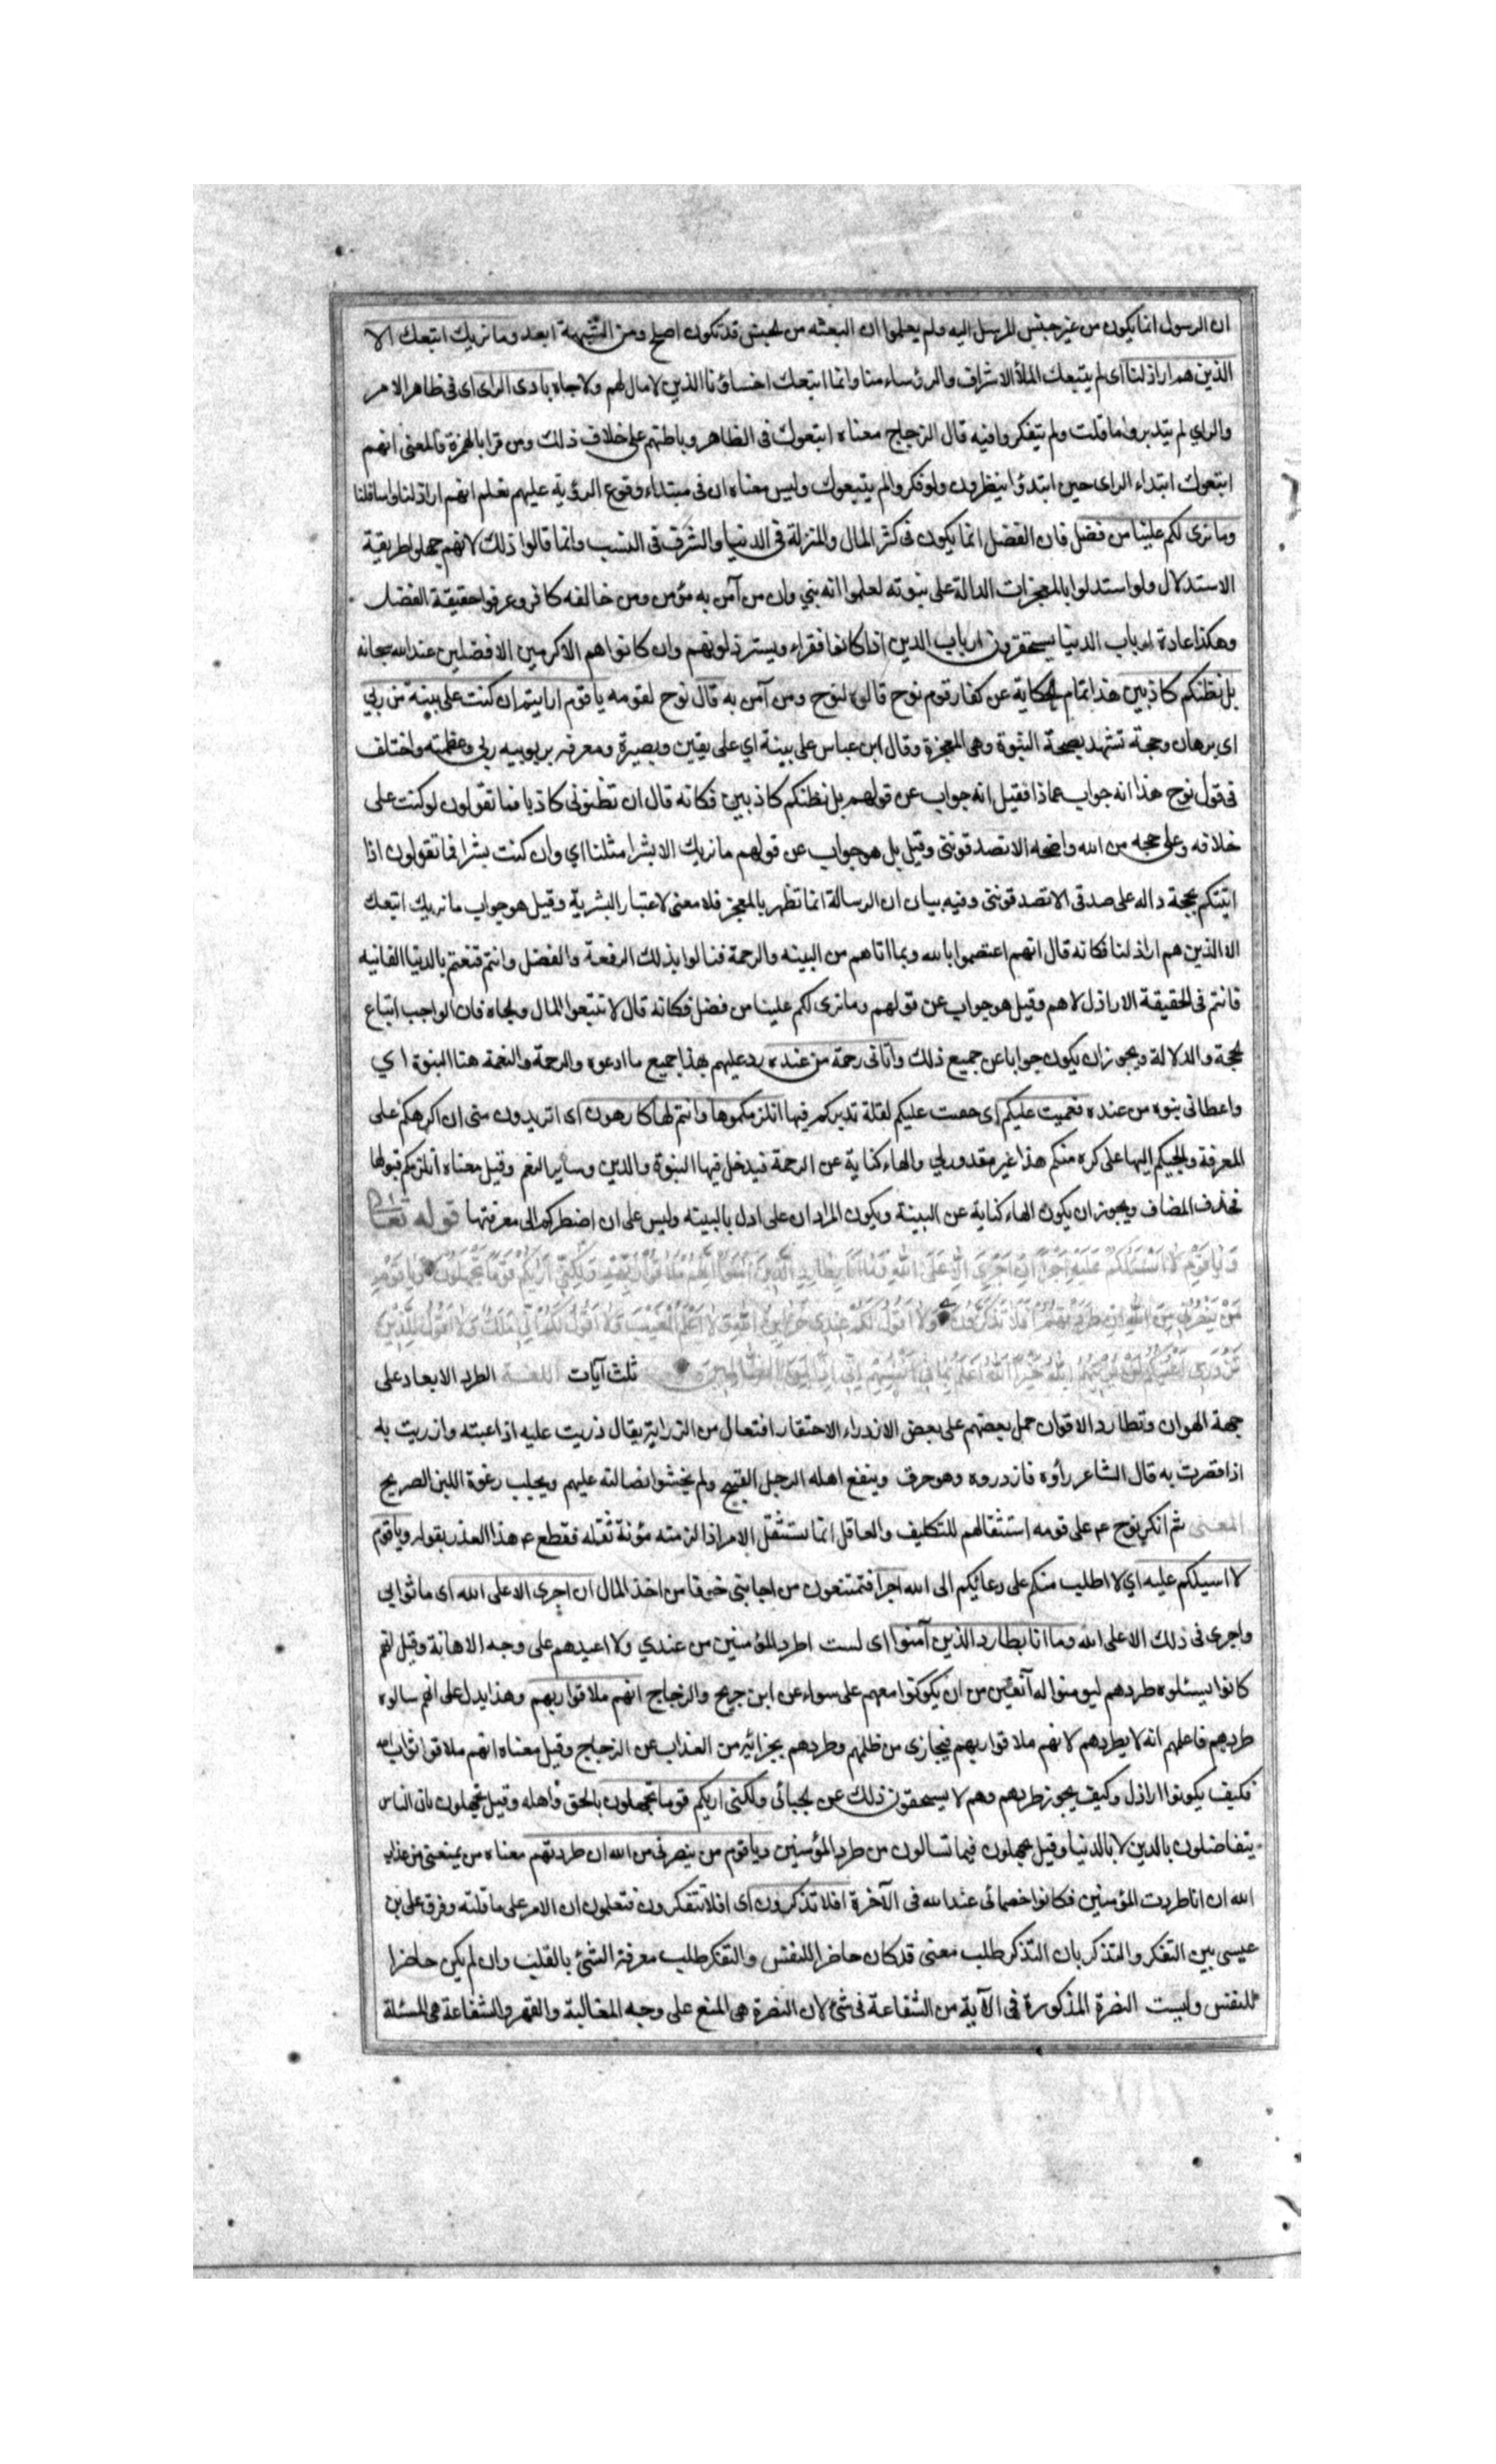 ان الرسول انما يكون من غير جنس المرسل اليه ولم يعلموا ان البعثه من الجنس قد تكون اصلح ومن الشبهة ابعد وما نريك اتبعك الا
الذين هم اراذلنا اى لم يتبعك الملأ الاشراف والرؤساء منا وانما اتبعك اخساؤنا الذين لا مال لهم ولا جاه بادى الراى اى فى ظاهر الامر
والراي لم يتدبروا ما قلت ولم يتفكروا فيه قال الزجاج معناه اتبعوك فى الظاهر وباطنهم على خلاف ذلك ومن قرا بالهمزة فالمعنى انهم
اتبعوك ابتداء الراى حين ابتدؤا ينظرون ولو فكروا لم يتبعوك وليس معناه ان فى مبتداء وقوع الرؤية عليهم نعلم انهم اراذلنا واسافلنا
وما نرى لكم علينا من فضل فان الفضل انما يكون فى كثرة المال والمنزلة فى الدنيا والشرف فى النسب وانما قالوا ذلك لانهم جهلوا طريقة
الاستدلال ولو استدلوا بالمعجزات الدالة على نبوته لعلموا انه نبي وان من آمن به مؤمن ومن خالفه كافر وعرفوا حقيقة الفضل
وهكذا عادة ارباب الدنيا يستحقرون ارباب الدين اذا كانوا فقراء ويسترذلونهم وان كانوا هم الاكرمين الافضلين عند الله سبحانه
بل نظنكم كاذبين هذا تمام الحكاية عن كفار قوم نوح قالوه لنوح ومن آمن به قال نوح لقومه يا قوم ارايتم ان كنت على بينة من ربي
اى برهان وحجة تشهد بصحة النبوة وهى المعجزة وقال ابن عباس على بينة اي على يقين وبصيرة ومعرفه بربوبيه ربى وعظمته واختلف
فى قول نوح هذا انه جواب عماذا فقيل انه جواب عن قولهم بل نظنكم كاذبين فكانه قال ان تظنونى كاذبا فما تقولون لو كنت على
خلافه وعلى حجه من الله واضحه الا تصدقوننى وقيل بل هو جواب عن قولهم ما نريك الا بشرا مثلنا اي وان كنت بشرا فما تقولون اذا
اتيتكم بحجة داله على صدقى الا تصدقوننى وفيه بيان ان الرسالة انما تظهر بالمعجز فلا معنى لاعتبار البشرية وقيل هو جواب ما نريك اتبعك
الا الذين هم اراذلنا فكانه قال انهم اعتصموا بالله وبما اتاهم من البينه والرحمة فنالوا بذلك الرفعة والفضل وانتم قنعتم بالدنيا الفانيه
فانتم فى الحقيقة الاراذل لا هم وقيل هو جواب عن قولهم وما نرى لكم علينا من فضل فكانه قال لا تتبعوا المال والجاه فان الواجب اتباع
الحجة والدلالة ويجوز ان يكون جوابا عن جميع ذلك واتانى رحمة من عنده رد عليهم بهذا جميع ما ادعوه والرحمة والنعمة هنا النبوة اي
واعطانى نبوه من عنده فعميت عليكم اى خفيت عليكم لقلة تدبركم فيها انلزمكموها وانتم لها كارهون اى اتريدون منى ان اكرهكم على
المعرفة والجيكم اليها على كره منكم هذا غير مقدور لي والهاء كناية عن الرحمة فيدخل فيها النبوة والدين وساير النعم وقيل معناه انلزمكم قبولها
فحذف المضاف ويجوز ان يكون الهاء كناية عن البينة ويكون المراد ان على ادل بالبينه وليس على ان اضطركم الى معرفتها قوله تعالى
وَيَا قَوْمِ لَا اَسْئَلُكُمْ عَلَيْهِ اَجْرًا اِنْ اَجْرِىَ اِلَّا عَلَى اللهِ وَمَا اَنَا بِطَارِدِ الَّذِينَ آمَنُوا اِنَّهُمْ مُلَاقُوا رَبِّهِمْ وَلَكِنِّى اَرَيكُمْ قَوْمًا تَجْهَلُونَ وَيَا قَوْمِ
مَنْ يَنْصُرُنِى مِنَ اللهِ اِنْ طَرَدْتُهُمْ اَفَلَا تَذَكَّرُونَ وَلَا اَقُولُ لَكُمْ عِنْدِى خَزَائِنُ اللهِ وَلَا اَعْلَمُ الْغَيْبَ وَلَا اَقُولُ اِنِّى مَلَكٌ وَلَا اَقُولُ لِلَّذِينَ
تَزْدَرِى اَعْيُنُكُمْ لَنْ يُؤْتِيَهُمُ اللهُ خَيْرًا اللهُ اَعْلَمُ بِمَا فِى اَنْفُسِهِمْ اِنِّى اِذًا لَمِنَ الظَّالِمِينَ ثلث آيات اللغة الطرد الابعاد على
جهة الهوان وتطارد الاقوان حمل بعضهم على بعض الازدراء الاحتقار افتعال من الزراية يقال زريت عليه اذا عبته وازريت به
اذا قصرت به قال الشاعر رأوه فازدروه وهو خرق وينفع اهله الرجل القبيح ولم يخشوا مصالته عليهم ويجلب رغوة اللبن الصريح
المعنى ثم انكر نوح ع م على قومه استثقالهم للتكليف والعاقل انما يستثقل الامر اذا لزمته مؤنة ثقله فقطع ع م هذا العذر بقوله ويا قوم
لا اسيلكم عليه اي لا اطلب منكم على دعائكم الى الله اجرا فتمتنعون من اجابتى خوفا من اخذ المال ان اجرى الا على الله اى ما ثوابى
واجرى فى ذلك الا على الله وما انا بطارد الذين آمنوا اى لست اطرد المؤمنين من عندي ولا ابعدهم على وجه الاهانة وقيل انهم
كانوا يسئلوه طردهم ليومنوا له آنفين من ان يكونوا معهم على سواء عن ابن جريح والزجاج انهم ملاقوا ربهم وهذا يدل على انهم سالوه
طردهم فاعلمهم انه لا يطردهم لانهم ملاقوا ربهم فيجازى من ظلمهم وطردهم بجزائه من العذاب عن الزجاج وقيل معناه انهم ملاقوا ثواب الله
فكيف يكونوا اراذل وكيف يجوز طردهم وهم لا يستحقون ذلك عن الجبائى ولكنى اريكم قوما تجهلون بالحق واهله وقيل تجهلون بان الناس
يتفاضلون بالدين لا بالدنيا وقيل تجهلون فيما تسالون من طرد المؤمنين ويا قوم من ينصرنى من الله ان طردتهم معناه من يمنعنى من عذاب
الله ان انا طردت المؤمنين فكانوا خصمائى عند الله فى الآخرة افلا تذكرون اى افلا تتفكرون فتعلمون ان الامر على ما قلته وفرق على بن
عيسى بين التفكر والتذكر بان التذكر طلب معنى قد كان حاضرا للنفس والتفكر طلب معرفة الشئ بالقلب وان لم يكن حاضرا
للنفس وليست النصرة المذكورة فى الآية من الشفاعة فى شئ لان النصرة هى المنع على وجه المغالبة والقهر والشفاعة هى المسئلة